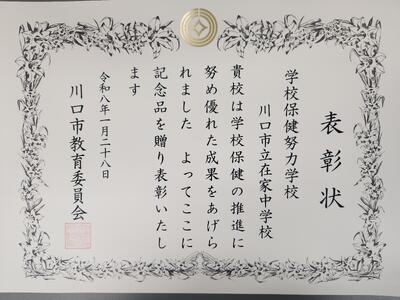 表彰状
学校保健努力学校
川口市立在家中学校
貴校は学校保健の推進に
努め優れた成果をあげら
れました　よってここに
記念品を贈り表彰いたし
ます
令和八年一月二十八日
川口市教育委員会